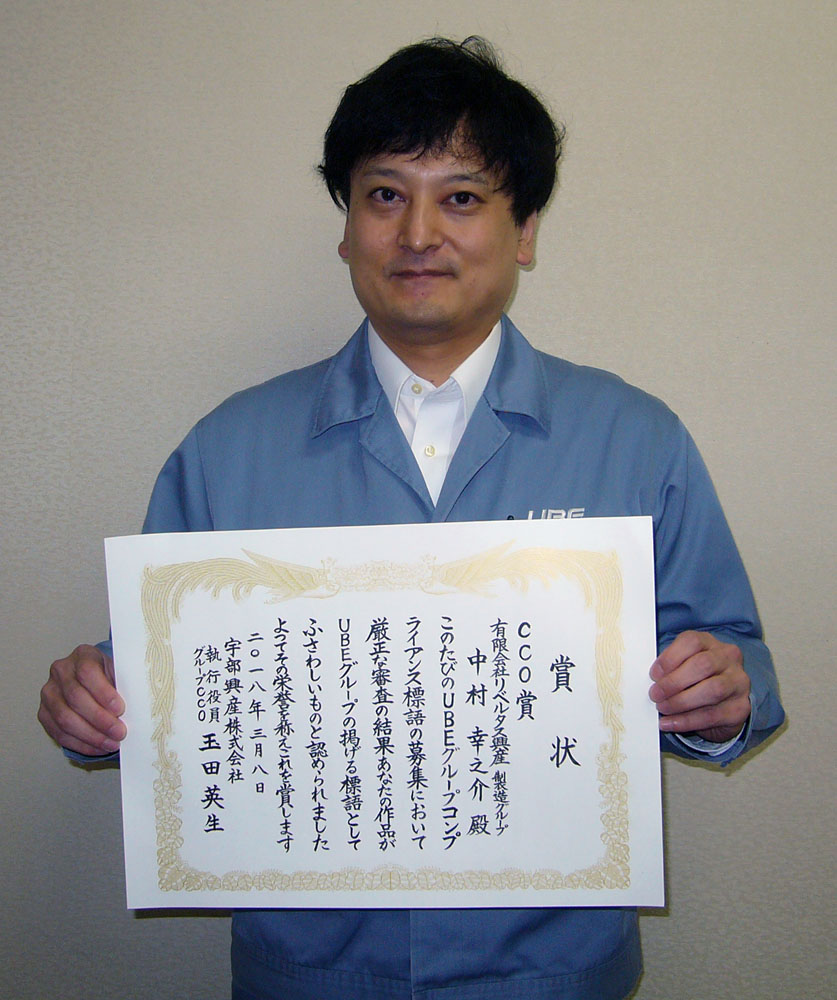 UBE
賞状
CCO賞
有限会社リベルタス興産 製造グループ
中村 幸之介 殿
このたびのUBEグループコンプ
ライアンス標語の募集において
厳正な審査の結果あなたの作品が
UBEグループの掲げる標語として
ふさわしいものと認められました
よってその栄誉を称えこれを賞します
二〇一八年三月八日
宇部興産株式会社
執行役員
グループCCO
玉田英生